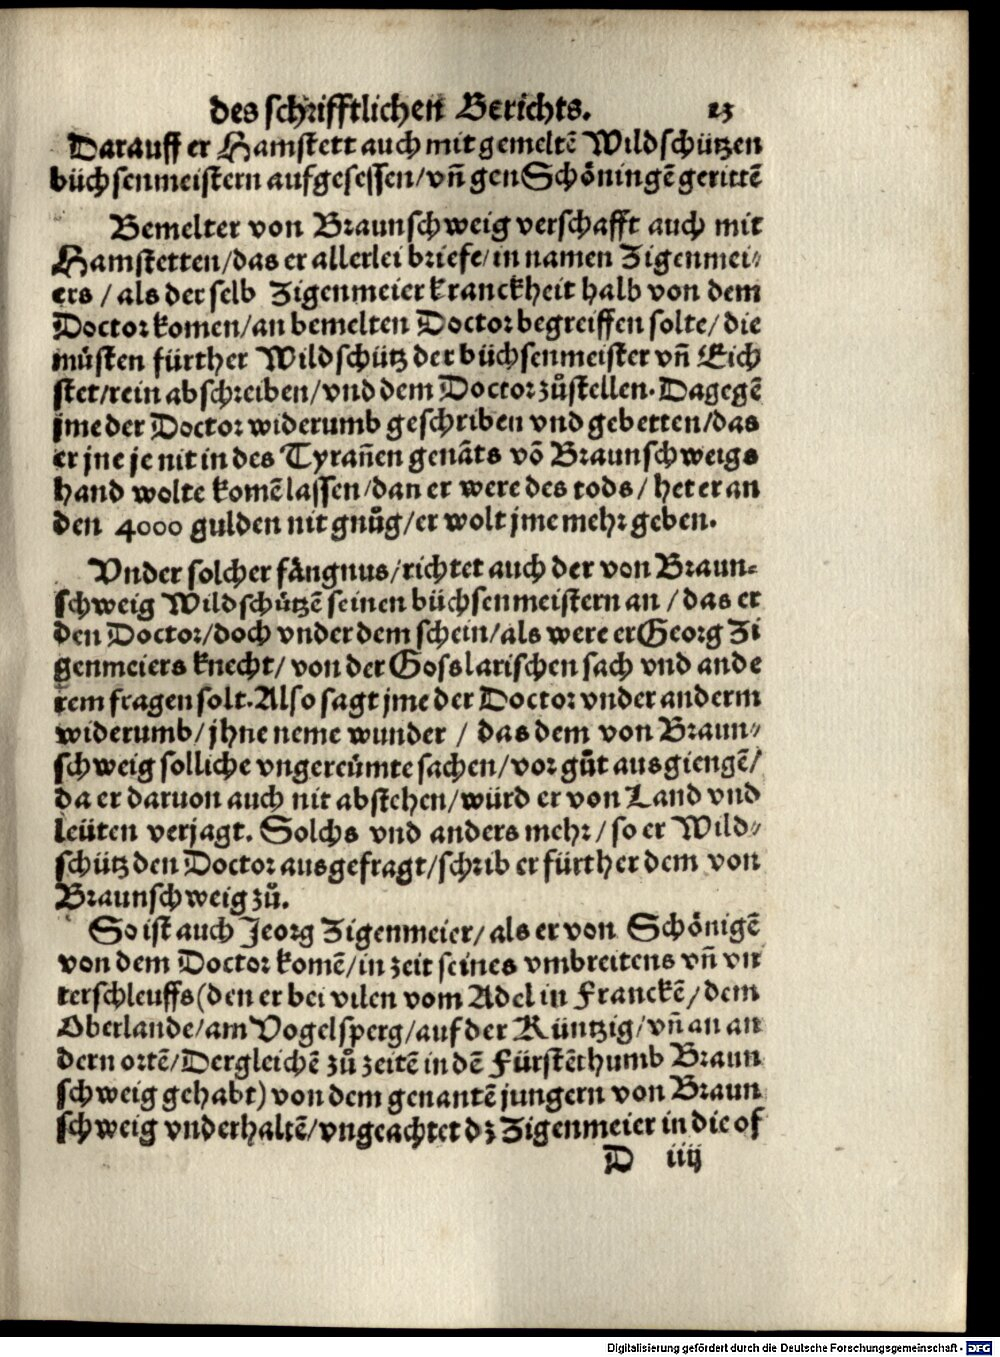 des schrifftlichen Berichts. 23
Darauff er Hamstett auch mit gemeltē Wildschützen
büchsenmeistern aufgesessen/vñ gen Schöningē gerittē
Bemelter von Braunschweig verschafft auch mit
Hamstetten/das er allerlei briefe/in namen Zigenmei⸗
ers / als der selb Zigenmeier kranckheit halb von dem
Doctor komen/an bemelten Doctor begreiffen solte/die
müsten fürther Wildschütz der büchsenmeister vñ Eich
stet/rein abschreiben/vnd dem Doctor zůstellen. Dagegē
jme der Doctor widerumb geschriben vnd gebetten/das
er jne je nit in des Tyrañen genāts vō Braunschweigs
hand wolte komē lassen/dan er were des tods/het er an
den 4000 gulden nit gnůg/er wolt jme mehr geben.
Vnder solcher fängnus/richtet auch der von Braun⸗
schweig Wildschützē seinen büchsenmeistern an/das er
den Doctor/doch vnder dem schein/als were er Georg Zi
genmeiers knecht/von der Gosslarischen sach vnd ande
rem fragen solt. Also sagt jme der Doctor vnder anderm
widerumb/jhne neme wunder / das dem von Braun⸗
schweig solliche vngereümte sachen/vor gůt ausgiengē/
da er daruon auch nit abstehen/würd er von Land vnd
leüten verjagt. Solchs vnd anders mehr/so er Wild⸗
schütz den Doctor ausgefragt/schrib er fürther dem von
Braunschweig zů.
So ist auch Jeorg Zigenmeier/als er von Schönigē
von dem Doctor komē/in zeit seines vmbreitens vñ vn
terschleuffs(den er bei vilen vom Adel in Franckē/dem
Oberlande/am Vogelsperg/auf der Küntzig/vñ an an
dern ortē/Dergleichē zů zeitē in dē Fürstēthumb Braun
schweig gehabt) von dem genantē jungern von Braun
schweig vnderhaltē/vngeachtet dz Zigenmeier in die of
D iiij
Digitalisierung gefördert durch die Deutsche Forschungsgemeinschaft - DFG